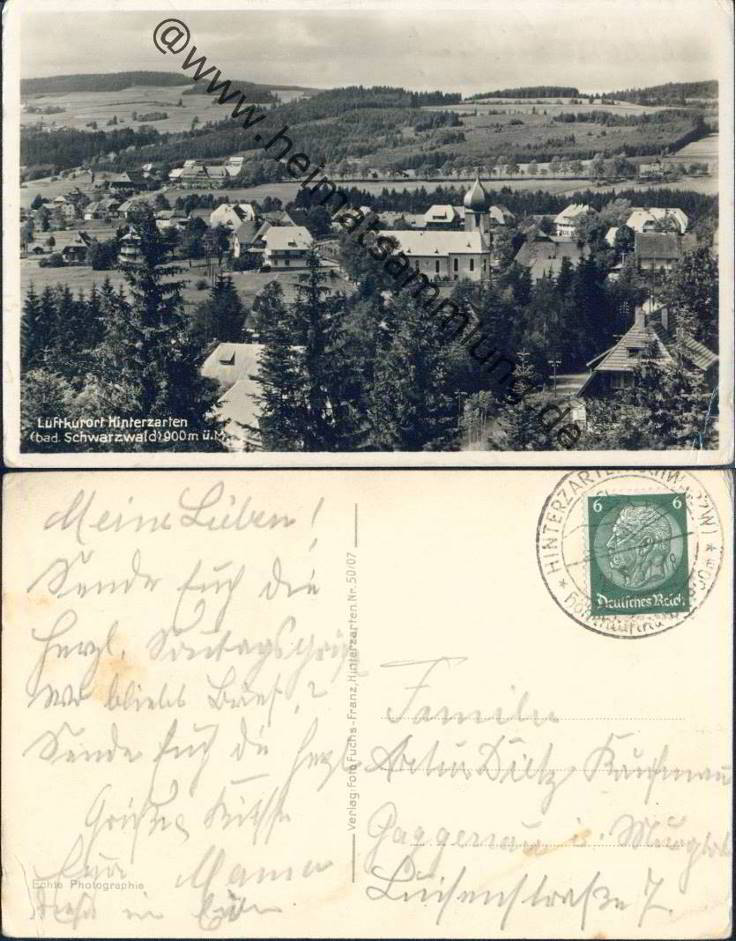 @www.heimatsammlung.de
Luftkurort Hinterzarten
(bad. Schwarzwald) 900m ü.M.
Meine Lieben!
Sende Euch die
herzl. Sonntagsgrüße
wo bleibt Brief?
Sende Euch die herzl
Grüße Küsse
Eure Mama
Echte Photographie
Verlag: Foto Fuchs-Franz, Hinterzarten Nr. 50/07
HINTERZARTEN (SCHWARZW)
6 6
Deutsches Reich
Familie
Artur Dietz Kaufmann
Gaggenau i. Murgtal
Luisenstraße 7.